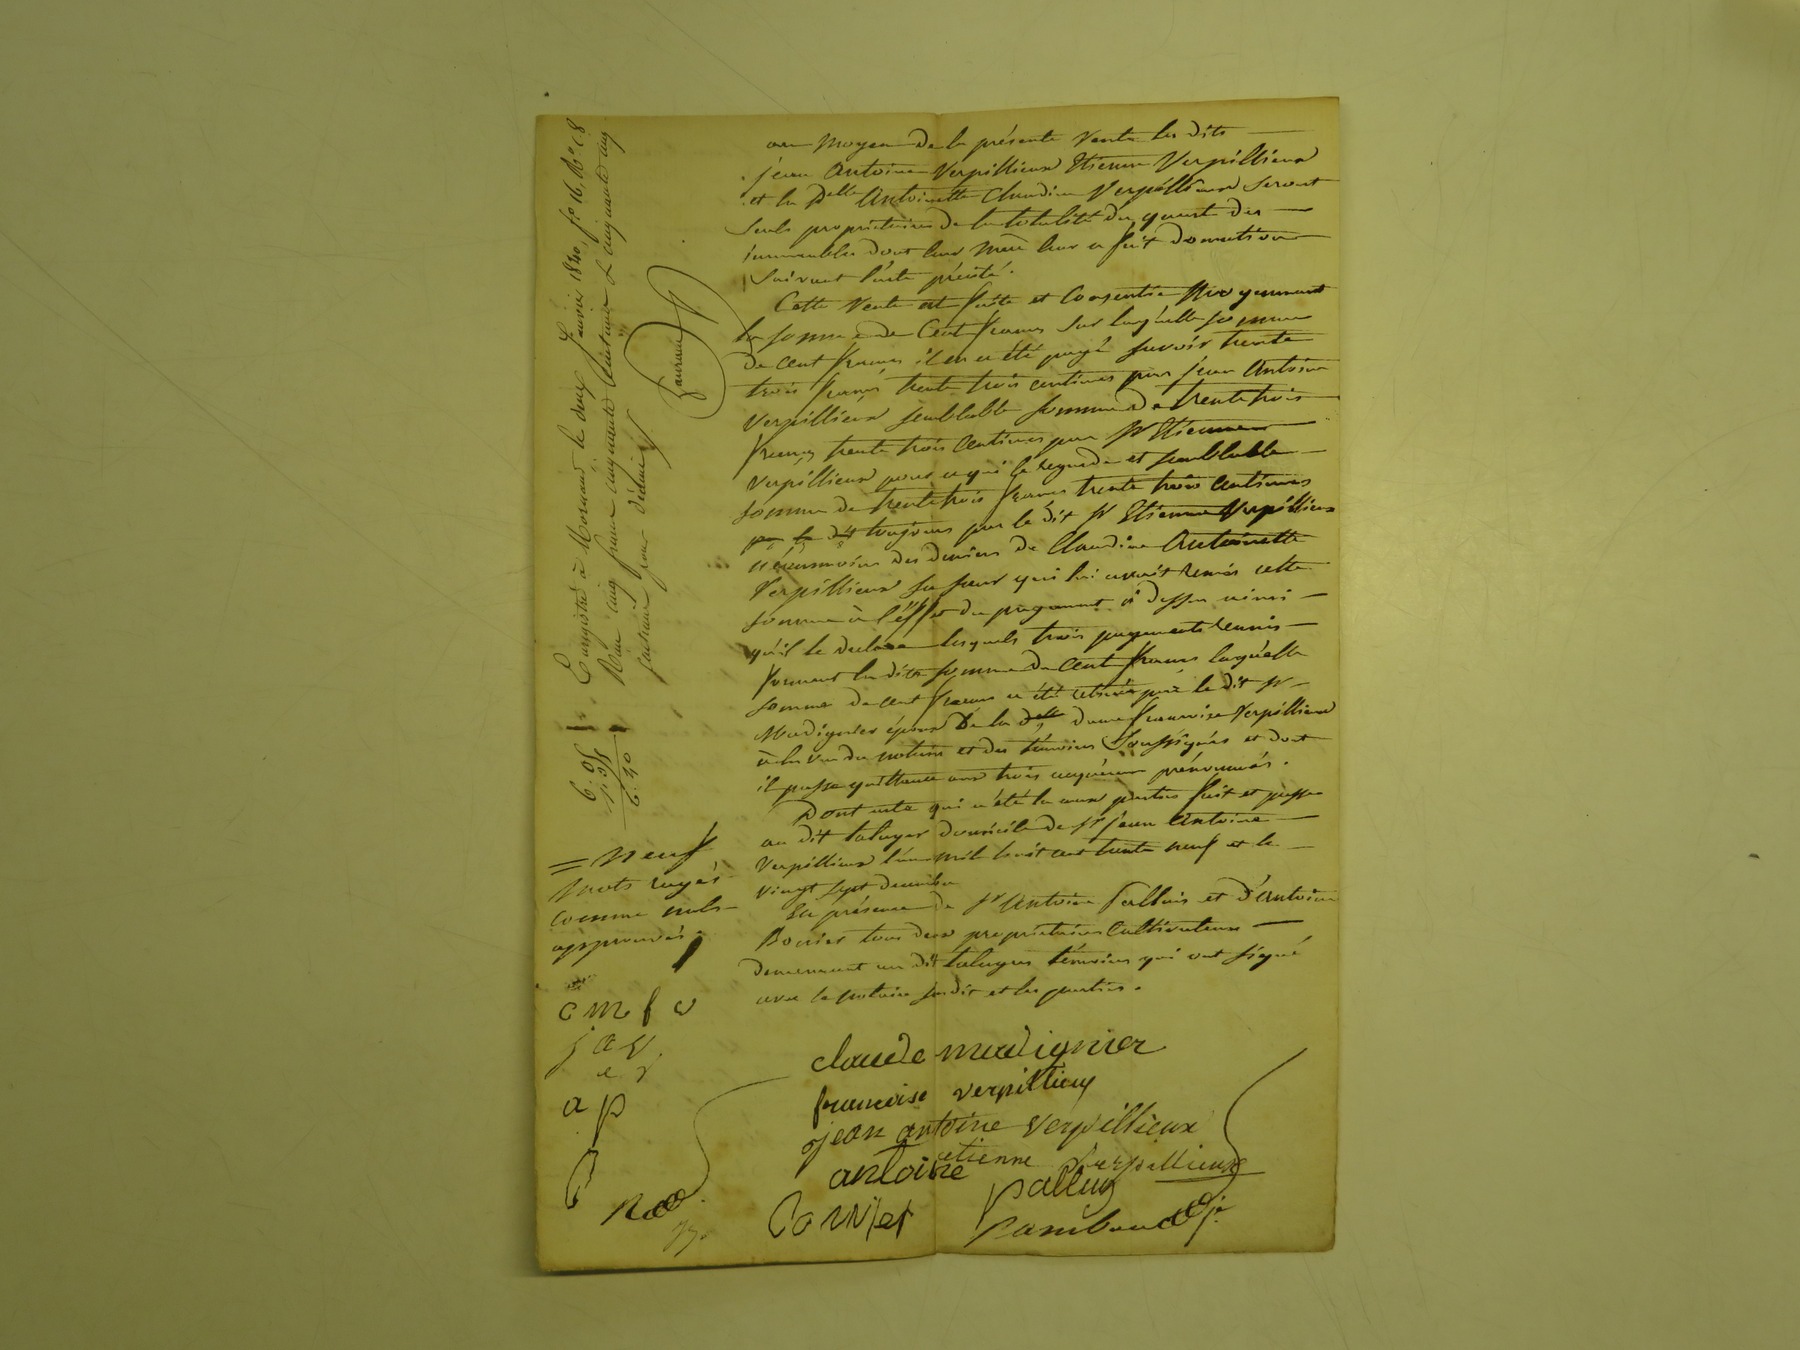 au moyen de la présente vente les dits
jean Antoine Verpillieux Etienne Verpillieux
et la Delle Antoinette Claudine Verpillieux seront
seuls propriétaires de la totalité du quart des
immeubles dont leur mère leur a fait donation
suivant l'acte précité.
Cette vente est faite et consentie moyennant
la somme de cent francs sur laquelle somme
de cent francs il en a été payé savoir trente
trois francs trente trois centimes par jean Antoine
Verpillieux semblable somme de trente trois
francs trente trois centimes par Sr Etienne
Verpillieux pour ce qui le regarde et semblable
somme de trente trois francs trente trois centimes
par le dit toujours par le dit Sr Etienne Verpillieux
néanmoins des deniers de Claudine Antoinette
Verpillieux sa sœur qui lui avait remis cette
somme à l'effet du payement ci dessus ainsi
qu'il le déclare lesquels trois payements réunis
forment la dite somme de cent francs laquelle
somme de cent francs a été retirée par le dit Sr
Madignier époux de la delle dame francoise Verpillieux
à la vue du notaire et des témoins soussignés et dont
il passe quittance aux trois acquéreurs prénommés.
Dont acte qui a été lu aux parties fait et passé
au dit taluyers domicile de Sr jean Antoine
Verpillieux l'an mil huit cent trente neuf et le
vingt sept décembre
En présence de Sr Antoine Palluis et d'Antoine
tous deux propriétaires cultivateurs
demeurant au dit taluyers témoins qui ont signé
avec le notaire susdit et les parties.
claude madignier
francoise verpillieux
jean antoine verpillieux
etienne verpillieux
antoine
palluy
Enregistré à Mornant le deux Janvier 1840, fo 16, Ro C8
Reçu cinq francs cinquante centimes & cinquante cinq
centimes pour décime
6. 05
6. 40
= neuf
mots rayés
comme nuls
approuvés.
c m f v
j a v
e v
a p